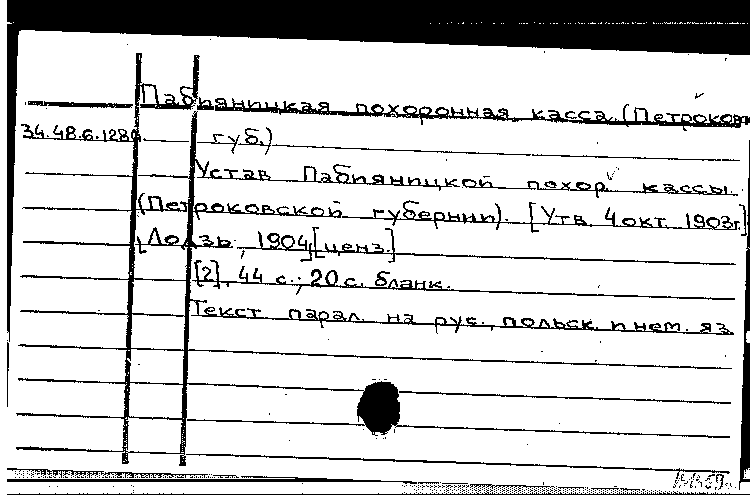 Пабияницкая похоронная касса (Петроковск.
34.48.6.1280. губ.)
Устав Пабияницкой похор. кассы.
(Петроковской губернии). [Утв. 4 окт. 1903г.]
[Лодзь, 1904] [ценз.]
[2], 44 с.; 20 с. бланк.
Текст парал. на рус., польск. и нем. яз.